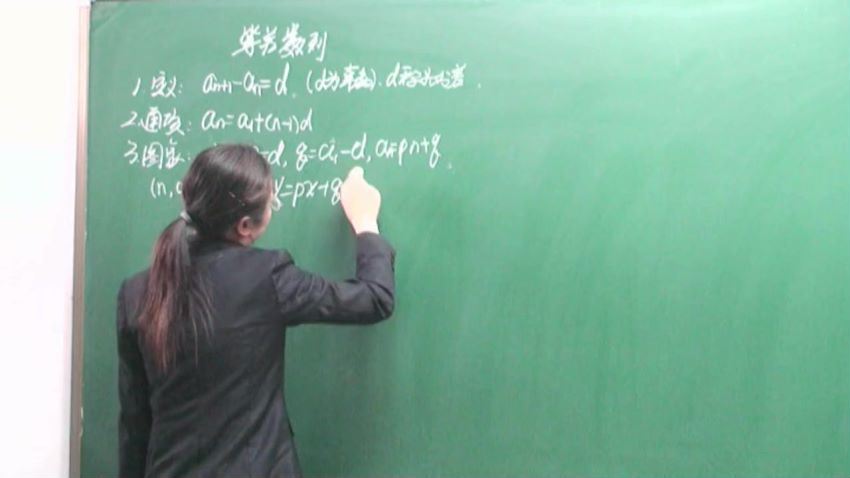 等差数列
1.定义: aₙ₊₁-aₙ=d. (d为常数). d称为公差.
2.通项: aₙ=a₁+(n-1)d
3.图象: =d, q=a₁-d, aₙ=pn+q.
(n, y=px+q